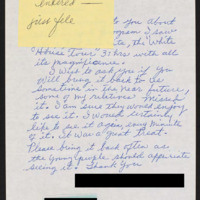 entered —
jess file
to you about
program I saw
the White
all
its magnificence.
I wish to ask you if you
will bring it back to us
sometime in the near future,
some of my relatives missed
it. I am sure they would enjoy
to see it. I would certainly
like to see it again, every minute
of it. It was a great treat.
Please bring it back often as
the young people should appreciate
seeing it. Thank You